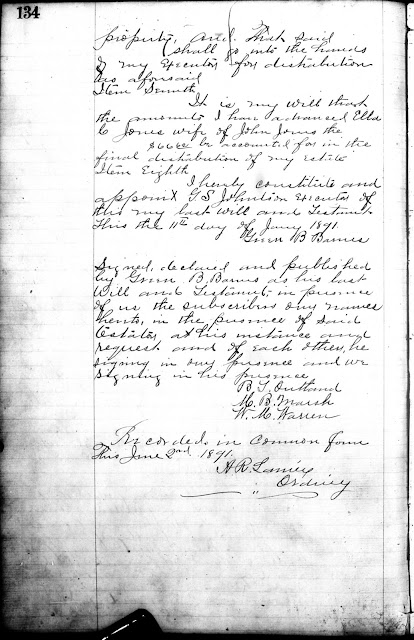 134
property, and that said
shall go into the hands
of my Executor for distribution
as aforsaid
Item Seventh
It is my will that
the amounts I have advanced Ella
C Jones wife of John Jones the
be accounted for in the
final distribution of my estate
Item Eighth
I henly constitute and
appoint T. S. Johnson Executor of
this my last will and Testament.
This the 11th day of Jany 1891.
Green B Barnes
Signed, declared and published
by Green B. Barnes as his last
Will and Testament, in presence
of us the subscribers our names
hereto, in the presence of said
testator, at his instance and
request and of each other, he
signing in our presence and we
signing in his presence
B. T. Outland
M. B. Marsh
W. M. Warren
Recorded in Common form
This June 2nd 1891.
A. R. Lanier
Ordinary